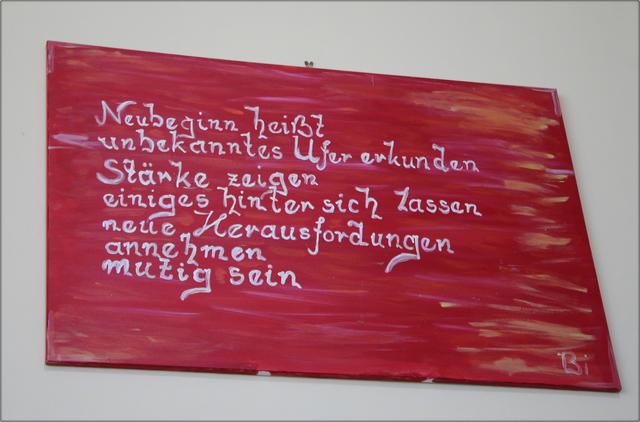 Neubeginn heißt
unbekanntes Ufer erkunden
Stärke zeigen
einiges hinter sich lassen
neue Herausfordungen
annehmen
mutig sein
Bi